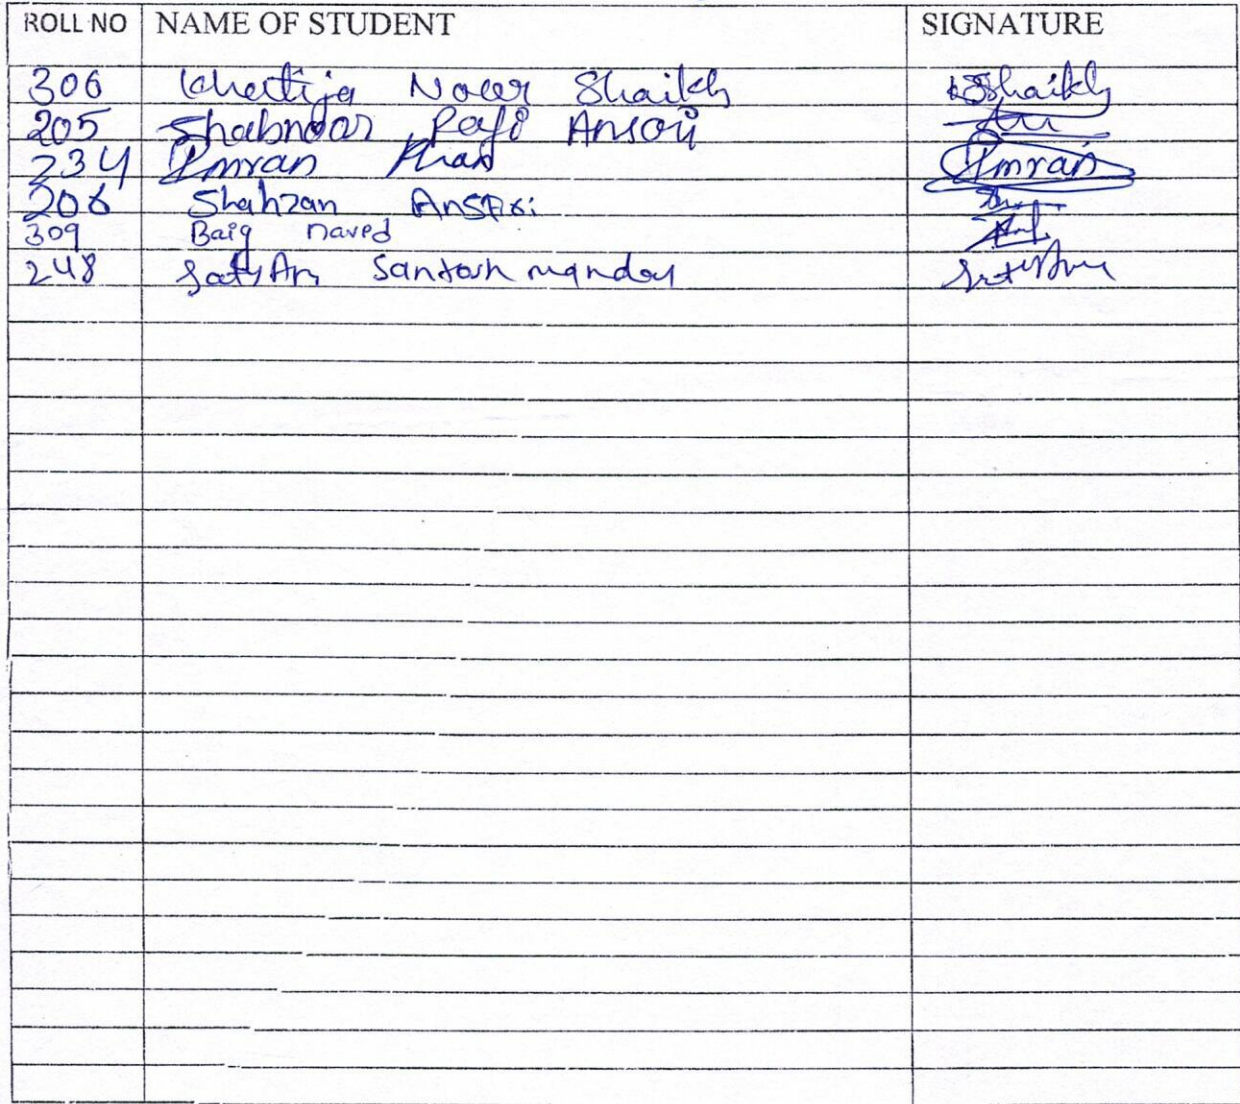 ROLL NO NAME OF STUDENT SIGNATURE
306 Khatija Noor Shaikh Shaikh
205 Shabnoor Rafi Ansari
234 Imran Khan Imran
206 Shahzan Ansari
309 Baig naved
248 SatyAm Santosh mandal